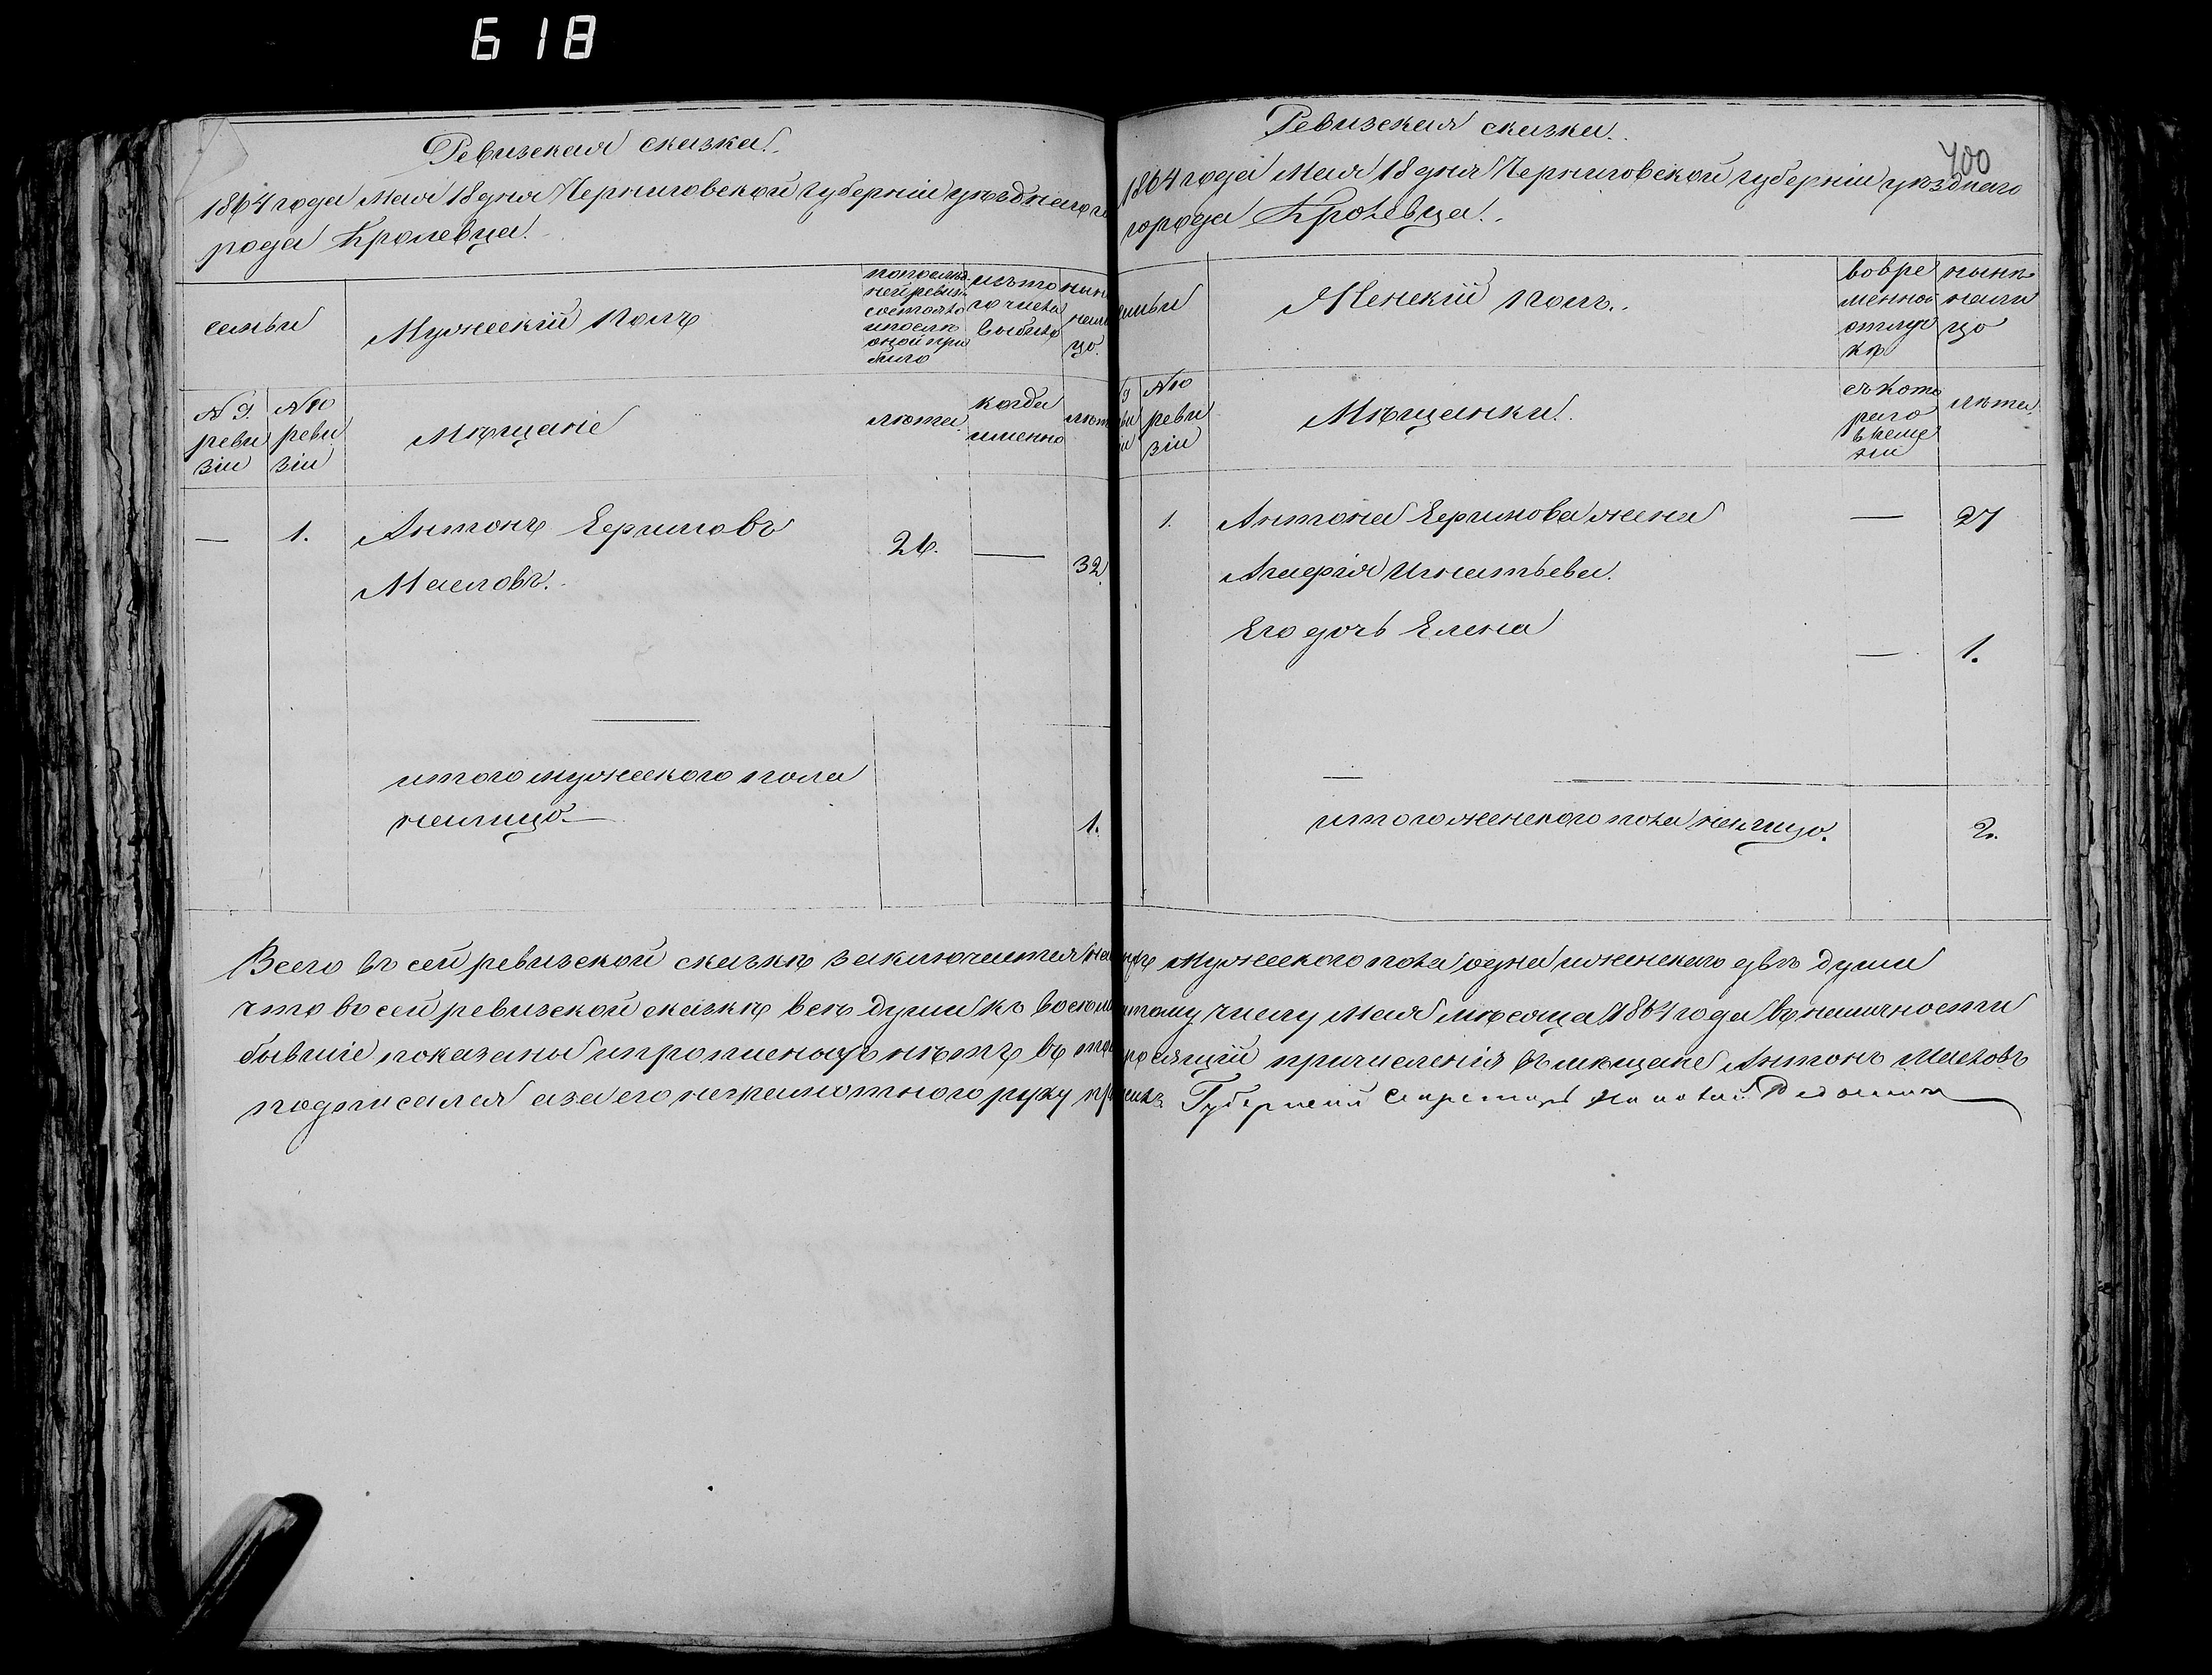 618
Ревизская сказка.
1864 года Мая 18 дня Черниговской Губерніи уѣзднаго го
рода Кролевца.
семьи
Мужескій полъ
по послѣд
ней ревизіи
состояло
и послѣ
оной при
было
изъ то
го числа
выбыло
нынѣ
нали
цо.
№ 9.
реви
зіи
№ 10
реви
зіи
Мѣщаніе
лѣта.
когда
именно
лѣта
—
1.
Антонъ Ефимовъ
Масловъ.
21.
—
32.
итого мужескаго пола
налицо —
1.
400
Ревизская сказка.
1864 года Мая 18 дня Черниговской губерніи уѣзднаго
города Кролевца.
семьи
Женскій полъ.
вовре
менной
отлуч
кѣ
нынѣ
нали
цо
9
№ 10
реви
зіи
Мѣщанки.
съ кото
раго
време
ни
лѣта.
1.
Антона Ефимова жена
—
27
Агафія Игнатьева.
Его дочь Елена
—
1.
итого женскаго пола налицо.
2.
Всего въ сей ревизской сказкѣ заключается на лицѣ мужескаго пола одна и женскаго двѣ души
что въ сей ревизской сказкѣ всѣ души къ восемнатому числу Мая мѣсяца 1864 года въ наличности
бывшіе показаны и прописныхъ нѣтъ въ том просящій причисленія въ мѣщане Антонъ Масловъ
подписался а за его неграмотнаго руку при Губернскій Секретарь